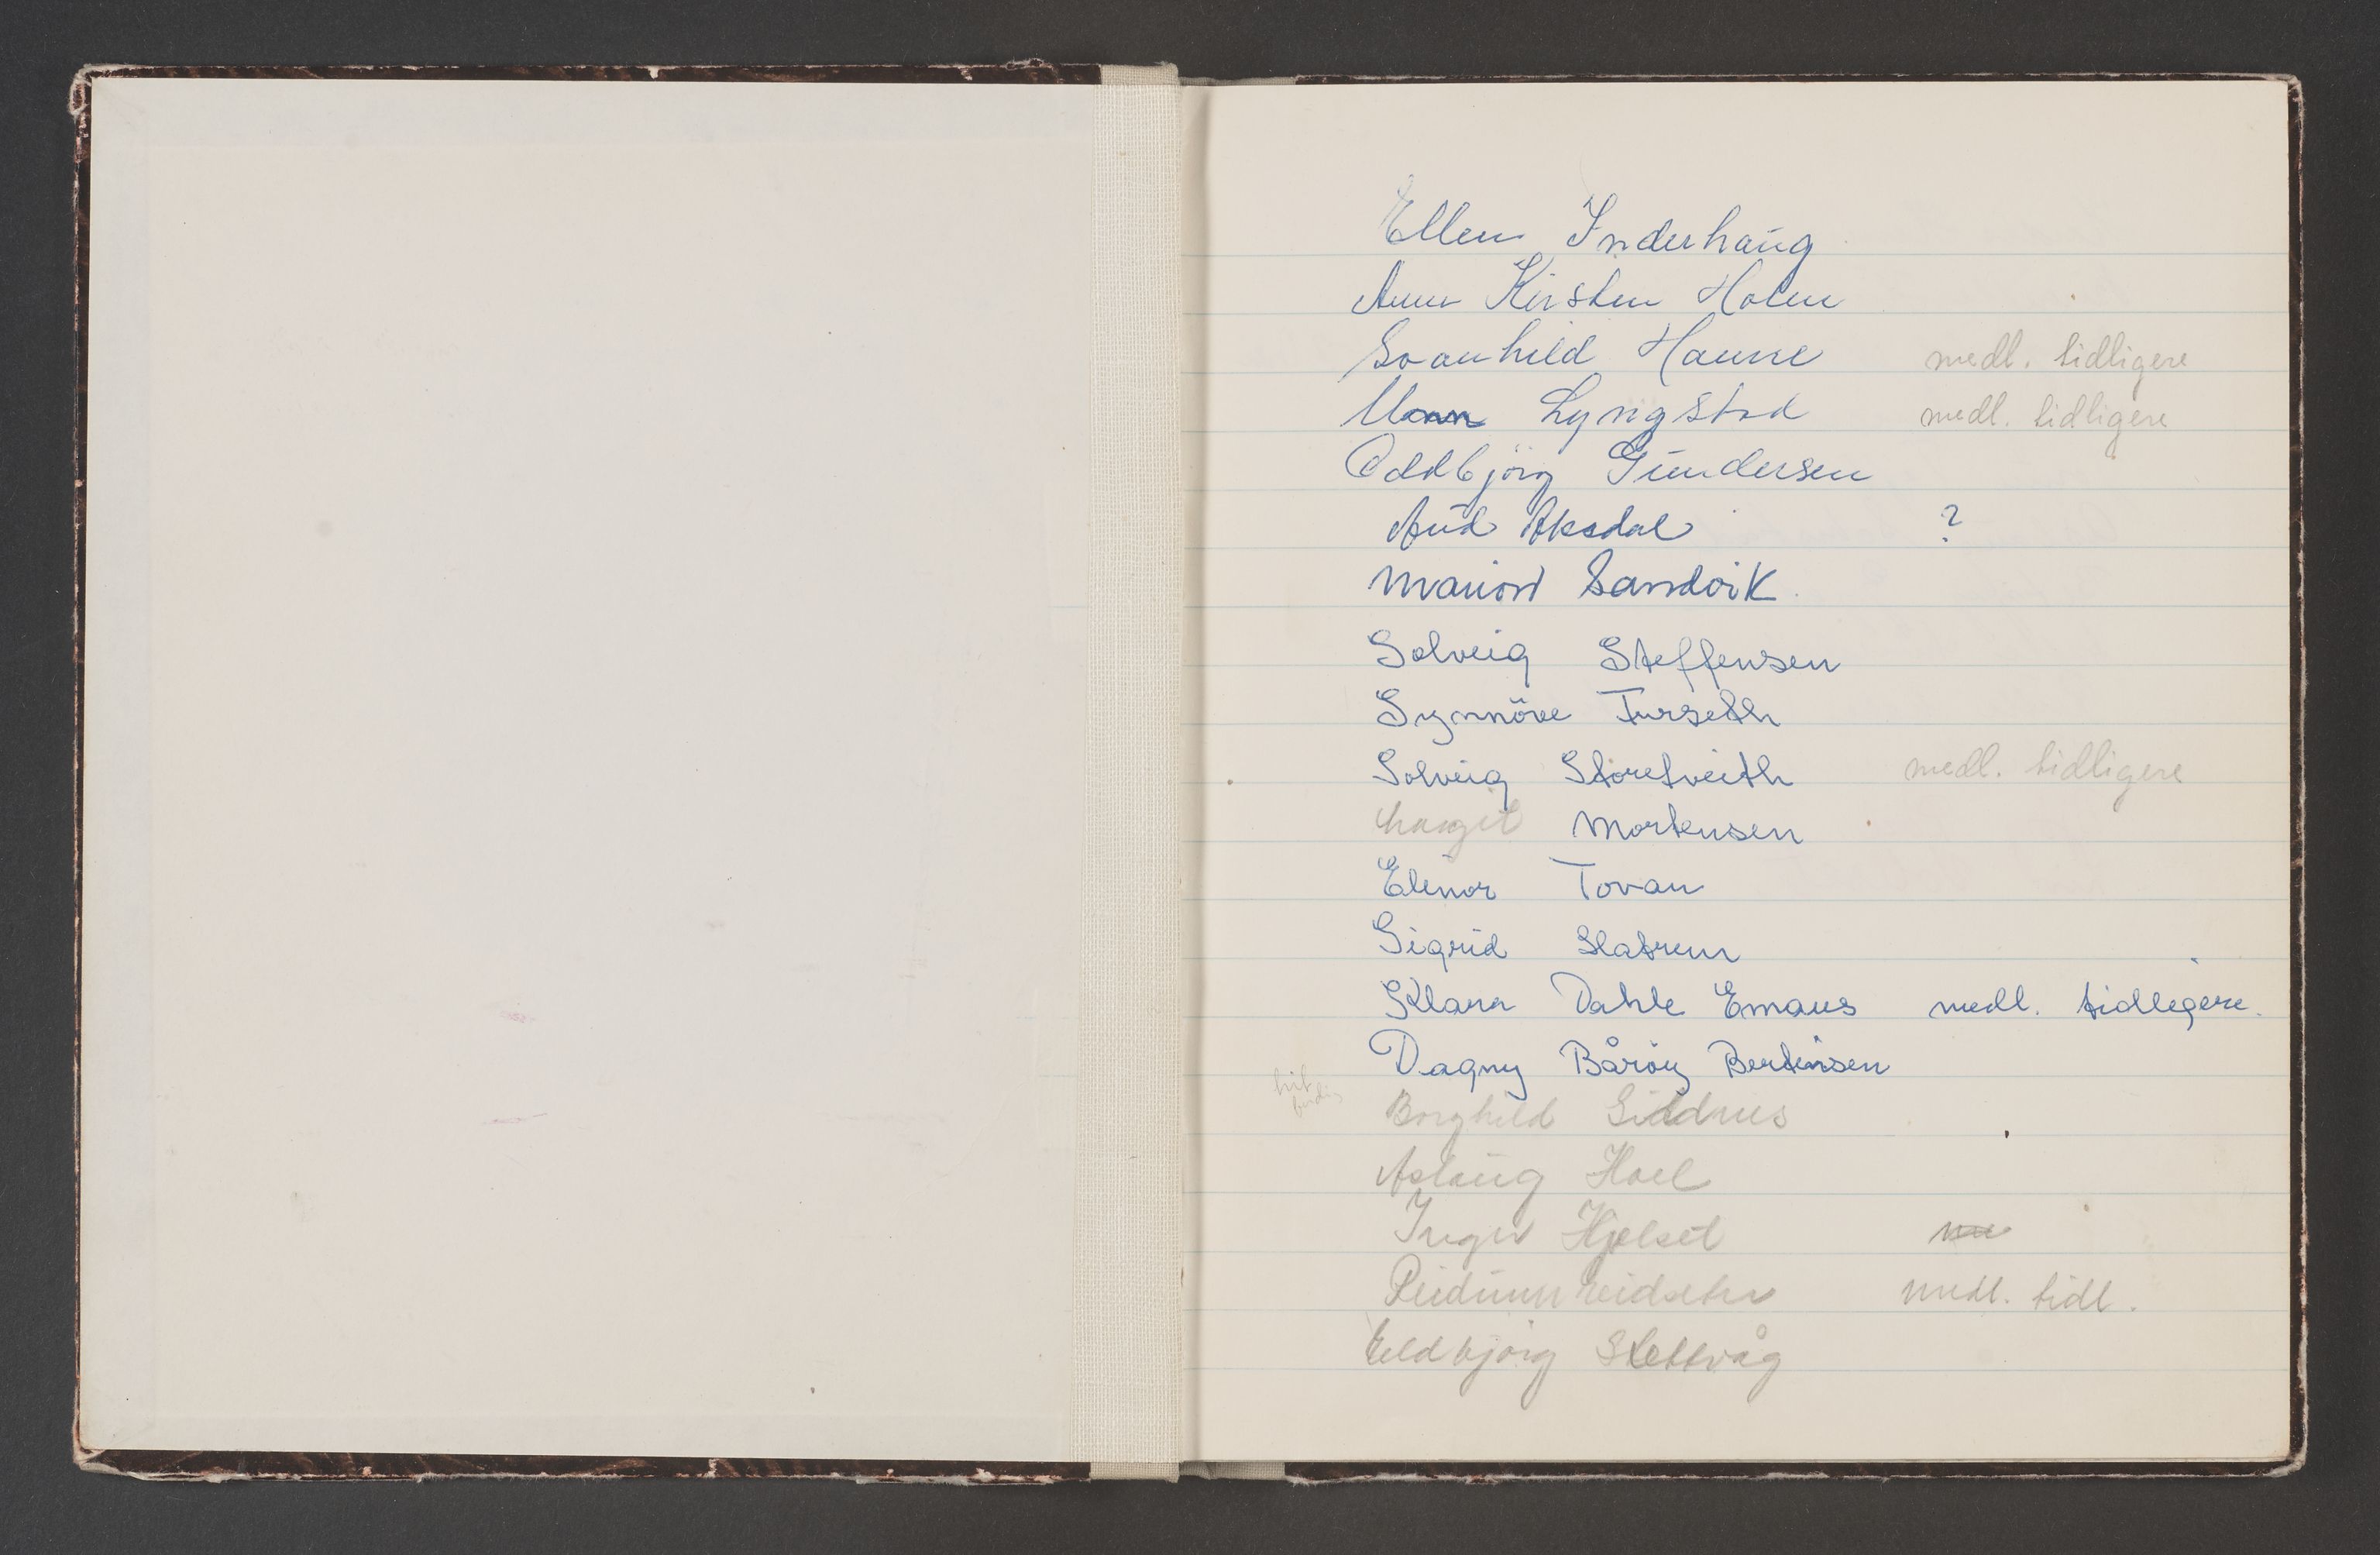 Ellen Inderhaug
Anne Kirsten Holm
Svanhild Hausse medl. tidligere
Lyngstad medl. tidligere
Oddbjörg Gundersen
Aud Aksdal ?
Marion Sandvik.
Solveig Steffensen
Synnöve Furseth
Solveig Storetveith medl. tidligere
Margit Mortensen
Elinor Tovan
Sigrid Slatrem
Klara Dahle Emaus medl. tidligere.
Dagny Båröy Bertinsen
Borghild
Aslaug Hoel
Inger Hjelset
Reidunn Eidseter medl. tidl.
Eldbjörg Slettvåg